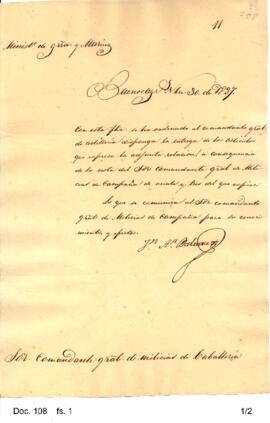 11
Minist.º de grra y Marina
Buenos ay.s 30 de 1857.
Con esta fha se ha ordenado al comandante gral
de artilleria disponga la entrega de los articulos
que espresa la adjunta relacion, á consequencia
de la nota del Sõr comandante gral de Mili
cias de Campaña de cuatro y tres del que espira
Lo que se comunica al Sõr comandante
gral de Milicias de Campaña para su conoci
miento, y efectos.
Sõr Comandante gral de milicias de Caballeria
Doc. 108 fs. 1
1/2